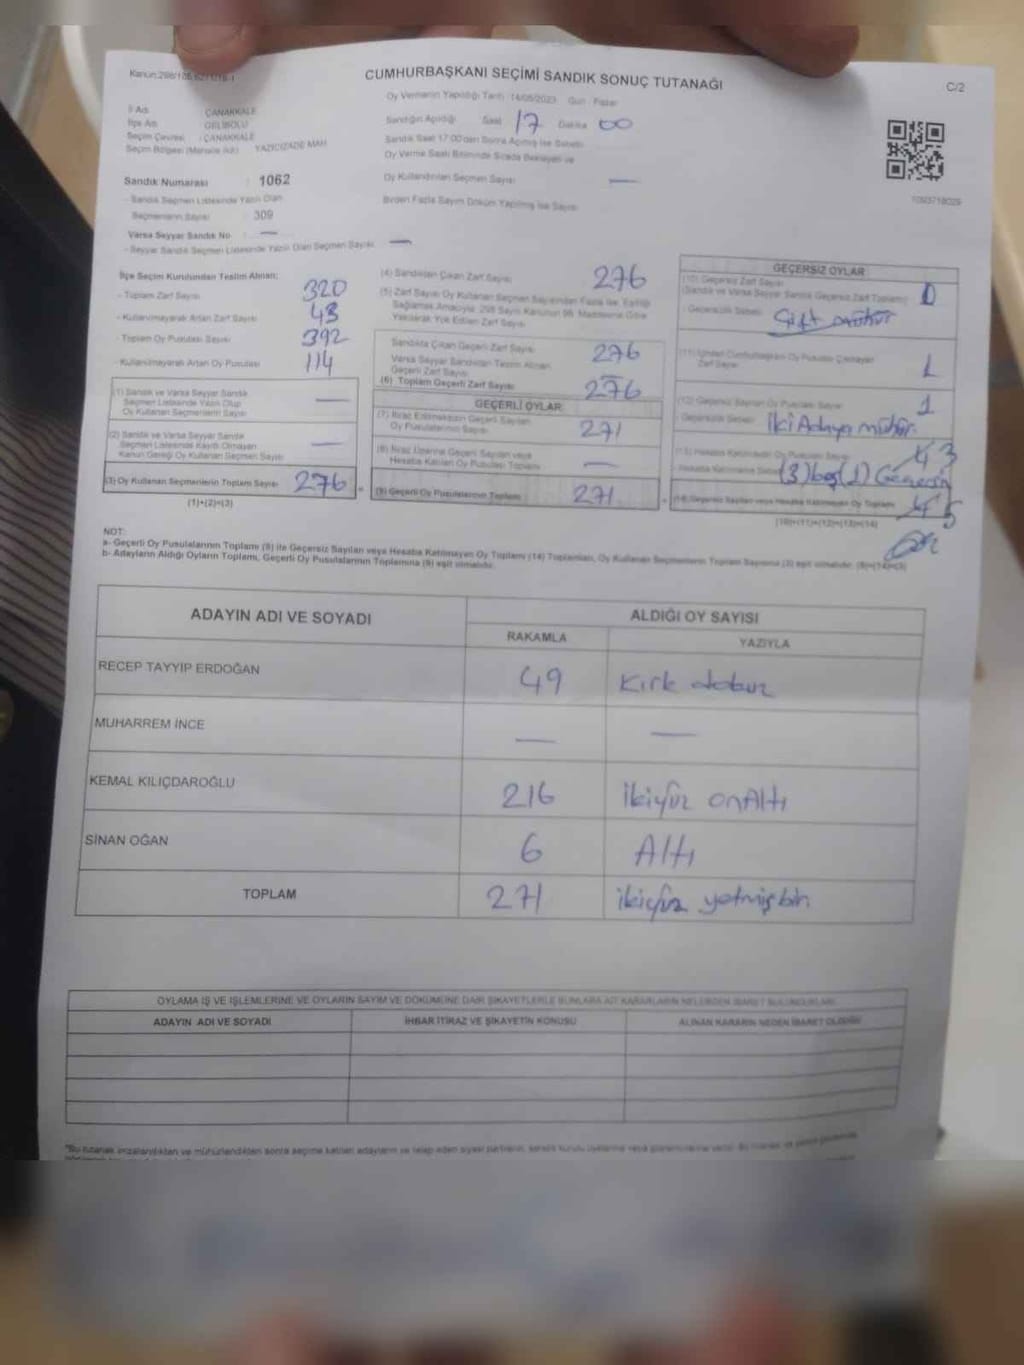 CUMHURBAŞKANI SEÇİMİ SANDIK SONUÇ TUTANAĞI
C/2
Oy Vermenin Yapıldığı Tarih : 14/05/2023 Gün : Pazar
İl Adı : ÇANAKKALE
İlçe Adı : GELİBOLU
Seçim Çevresi : ÇANAKKALE
Seçim Bölgesi (Mahalle /Köy) : YAZICIZADE MAH
Sandığın Açıldığı Saat 17 Dakika 00
Sandık Saat 17:00'den Sonra Açılmış İse Sebebi
Oy Verme Saati Bitiminde Sırada Bekleyen ve
Oy Kullandırılan Seçmen Sayısı —
Birden Fazla Sayım Döküm Yapılmış İse Sayısı
Sandık Numarası : 1062
- Sandık Seçmen Listesinde Yazılı Olan
Seçmenlerin Sayısı : 309
Varsa Seyyar Sandık No : —
- Seyyar Sandık Seçmen Listesinde Yazılı Olan Seçmen Sayısı: —
İlçe Seçim Kurulundan Teslim Alınan;
- Toplam Zarf Sayısı 320
- Kullanılmayarak Artan Zarf Sayısı 43
- Toplam Oy Pusulası Sayısı 392
- Kullanılmayarak Artan Oy Pusulası 114
(1) Sandık ve Varsa Seyyar Sandık
Seçmen Listesinde Yazılı Olup
Oy Kullanan Seçmenlerin Sayısı —
(2) Sandık ve Varsa Seyyar Sandık
Seçmen Listesinde Kayıtlı Olmayan
Kanun Gereği Oy Kullanan Seçmen Sayısı —
(3) Oy Kullanan Seçmenlerin Toplam Sayısı 276
(1)+(2)=(3)
(4) Sandıktan Çıkan Zarf Sayısı 276
(5) Zarf Sayısı Oy Kullanan Seçmen Sayısından Fazla İse, Eşitliği
Sağlamak Amacıyla 298 Sayılı Kanunun 98. Maddesine Göre
Yakılarak Yok Edilen Zarf Sayısı
Sandıkta Çıkan Geçerli Zarf Sayısı 276
Varsa Seyyar Sandıktan Teslim Alınan
Geçerli Zarf Sayısı
(6) Toplam Geçerli Zarf Sayısı 276
GEÇERLİ OYLAR
(7) İtiraz Edilmeksizin Geçerli Sayılan
Oy Pusulalarının Sayısı 271
(8) İtiraz Üzerine Geçerli Sayılan veya
Hesaba Katılan Oy Pusulası Toplamı —
(9) Geçerli Oy Pusulalarının Toplamı 271
GEÇERSİZ OYLAR
(10) Geçersiz Zarf Sayısı
(Sandık ve Varsa Seyyar Sandık Geçersiz Zarf Toplamı)
- Geçersizlik Sebebi: Çift mühür
(11) İçinden Cumhurbaşkanı Oy Pusulası Çıkmayan
Zarf Sayısı 1
(12) Geçersiz Sayılan Oy Pusulası Sayısı 1
- Geçersizlik Sebebi: İki Adaya mühür.
3
(3) boş (1) Geçersiz
5
(10)+(11)+(12)+(13)=(14)
NOT:
a- Geçerli Oy Pusulalarının Toplamı (9) ile Geçersiz Sayılan veya Hesaba Katılmayan Oy Toplamı (14) Toplamları, Oy Kullanan Seçmenlerin Toplam Sayısına (3) eşit olmalıdır. (9)+(14)=(3)
b- Adayların Aldığı Oyların Toplamı, Geçerli Oy Pusulalarının Toplamına (9) eşit olmalıdır.
ADAYIN ADI VE SOYADI
ALDIĞI OY SAYISI
RAKAMLA YAZIYLA
RECEP TAYYIP ERDOĞAN 49 Kırk dokuz
MUHARREM İNCE — —
KEMAL KILIÇDAROĞLU 216 İkiyüz onAltı
SİNAN OĞAN 6 Altı
TOPLAM 271 ikiyüz yetmişbir
OYLAMA İŞ VE İŞLEMLERİNE VE OYLARIN SAYIM VE DÖKÜMÜNE DAİR ŞİKAYETLERLE BUNLARA AİT KARARLARIN NELERDEN İBARET BULUNDUKLARI
ADAYIN ADI VE SOYADI İHBAR İTİRAZ VE ŞİKAYETİN KONUSU ALINAN KARARIN NEDEN İBARET OLDUĞU